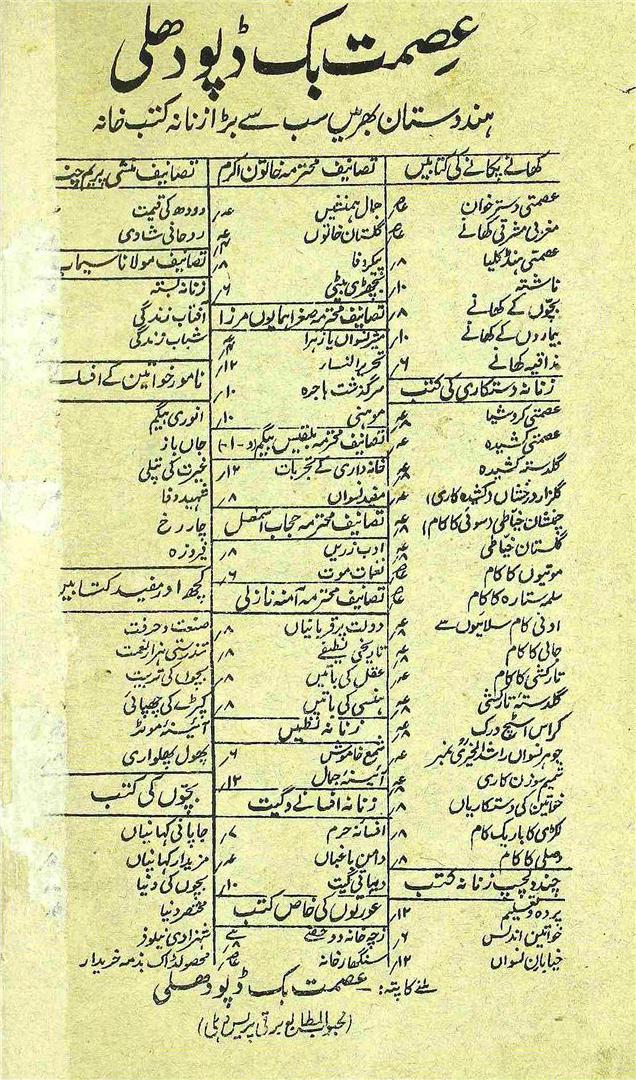 عصمت بک ڈپو دھلی
ہندوستان بھر میں سب سے بڑا زنانہ کتب خانہ
کھانے پکانے کی کتابیں
عصمتی دسترخوان
مغربی مشرقی کھانے
عصمتی ہنڈکلیا ۸؍
ناشتہ ۱۰؍
بچوں کے کھانے ۸؍
بیماروں کے کھانے ۱۰؍
مذاقیہ کھانے ۶؍
زنانہ دستکاری کی کتب
عصمتی کروشیا
عصمتی کشیدہ
گلدستہ کشیدہ
گلزار درخشاں (کشیدہ کاری)
چمنستان خیاطی (سوئی کا کام)
گلستان خیاطی
موتیوں کا کام
سلمہ ستارہ کا کام
اونی کام سلائیوں سے
جالی کا کام
تارکشی کا کام
گلدستہ تارکشی
کراس اسٹچ ورک
جوہر نسواں راشد الخیری نمبر
شمیم سوزن کاری
خواتین کی دستکاریاں ۸؍
لکڑی کا باریک کام ۸؍
دھلی کا کام ۸؍
چند دلچسپ زنانہ کتب
پردہ و تعلیم ۱۲؍
خواتین اندلس ۶؍
خیابان نسواں ۱۲؍
تصانیف محترمہ خاتون اکرم
جمال ہمنشیں
گلستان خاتون
پیکر وفا ۸؍
بچھڑی بیٹی ۶؍
تصانیف محترمہ صغرا ہمایوں مرزا
مشیر نسواں یا زہرا
تحریر النساء ۱۲؍
سرگذشت ہاجرہ ۱۰؍
موہنی ۱۰؍
تصانیف محترمہ بلقیس بیگم
خانہ داری کے تجربات ۱۲؍
مفید نسواں ۸؍
تصانیف محترمہ حجاب اسمعیل
ادب زریں ۸؍
نغمات موت ۶؍
تصانیف محترمہ آمنہ نازلی
دولت پر قربانیاں ۸؍
تاریخی لطیفے ۸؍
عقل کی باتیں ۸؍
ہنسی کی باتیں ۸؍
زنانہ نظمیں
شمع خاموش ۶؍
آئینۂ جمال ۱۲؍
زنانہ افسانے و گیت
افسانہ حرم ۷؍
دامن باغباں
دیہاتی گیت ۱۰؍
عورتوں کی خاص کتب
زچہ خانہ دو حصے
سنگھار خانہ
تصانیف منشی پریم چند
دودھ کی قیمت
روحانی شادی
تصانیف مولانا سیماب
زنانہ بستہ
آفتاب زندگی
شباب زندگی
نامور خواتین کے افسانے
انوری بیگم
جاں باز
غیرت کی پتلی
شہید وفا
چار رخ
فیروزہ
کچھ اور مفید کتابیں
صنعت و حرفت
تندرستی ہزار نعمت
بچوں کی تربیت
کپڑے کی چھپائی
آئینۂ موٹر
پھول پھلواری
بچوں کی کتب
جاپانی کہانیاں
مزیدار کہانیاں
بچوں کی دنیا
مختصر دنیا
شہزادی نیلوفر
محصول ڈاک بذمہ خریدار
ملنے کا پتہ: - عصمت بک ڈپو دھلی
(محبوب المطابع برقی پریس دہلی)